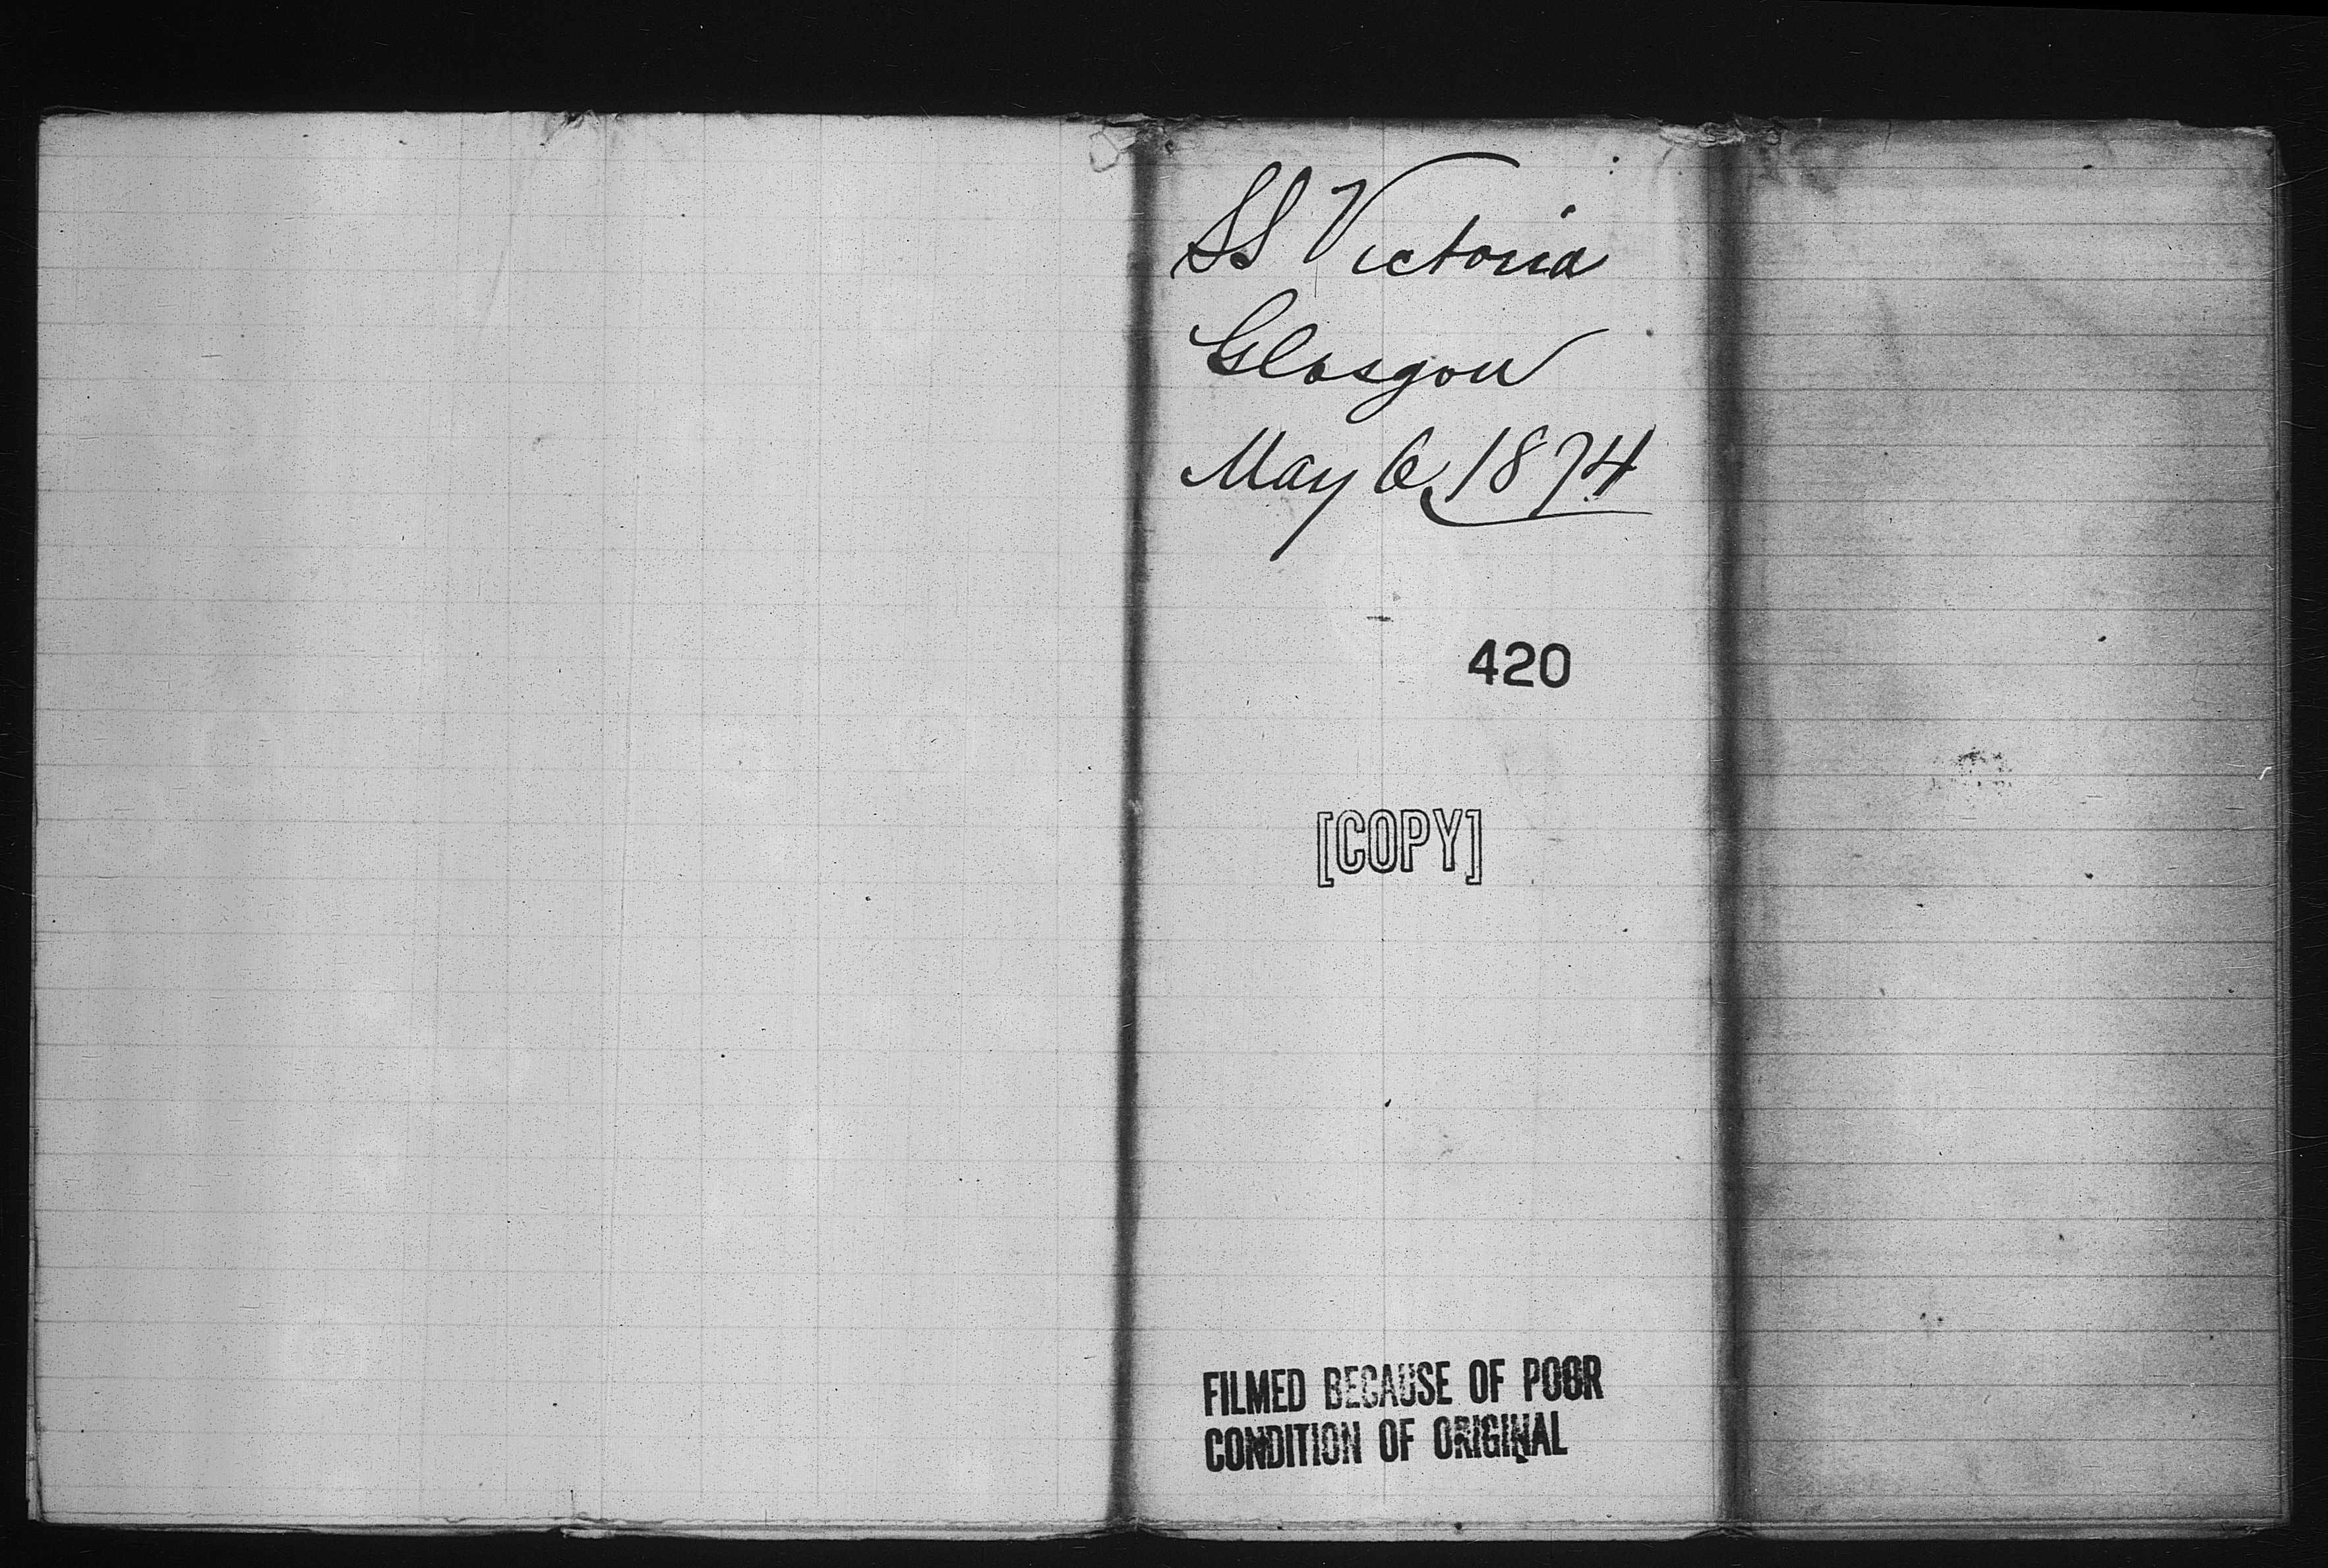 SS Victoria
Glasgow
May 6, 1874
420
[COPY]
FILMED BECAUSE OF POOR
CONDITION OF ORIGINAL